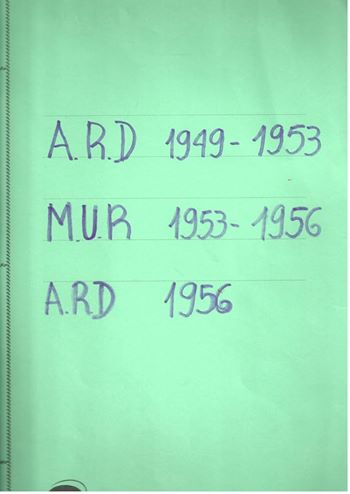 A.R.D 1949-1953
M.U.R 1953-1956
A.RD 1956